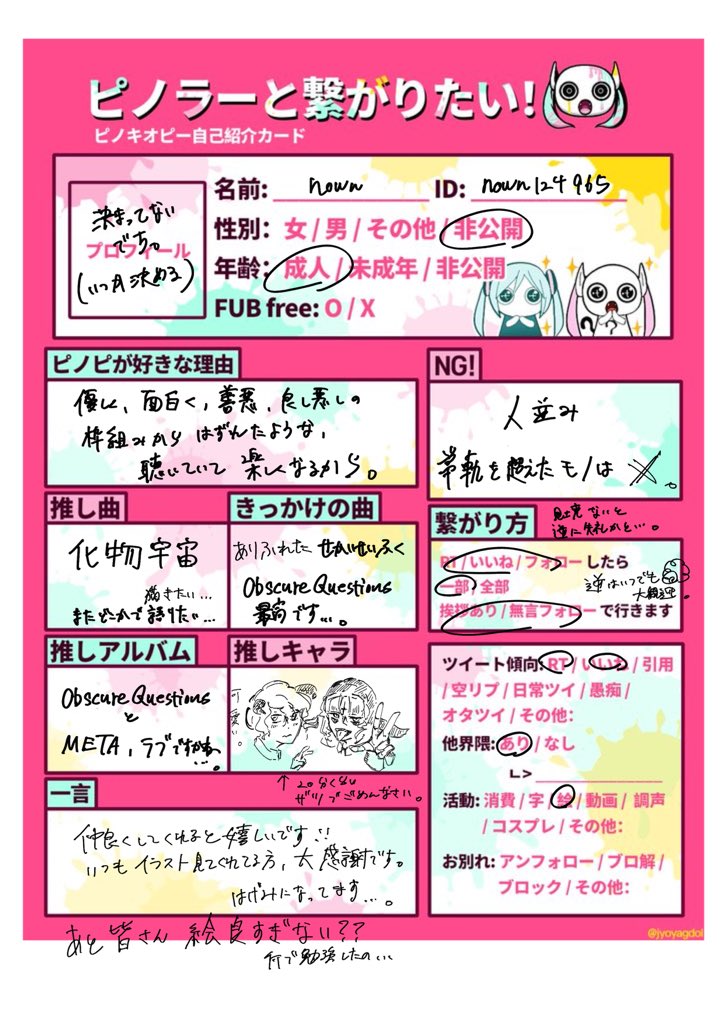 ピノラーと繋がりたい!
ピノキオピー自己紹介カード
決まってない
でち。
プロフィール
(いつか決める)
名前: nown ID: nown124965
性別: 女 / 男 / その他 / 非公開
年齢: 成人 / 未成年 / 非公開
FUB free: O / X
ピノピが好きな理由
優しく、面白く、善悪、良し悪しの
枠組みから はずんだような、
聴いていて 楽しくなるから。
NG!
人並み
常軌を超えたモノは ×。
推し曲
化物宇宙
描きたい…
またどこかで語りたい…
きっかけの曲
ありふれた せかいせいふく
Obscure Questions
最高です…。
繋がり方
見定ないと
逆に失礼かと…。
RT / いいね / フォローしたら
一部 / 全部
逆はいつでも
大歓迎。
挨拶あり / 無言フォローで行きます
推しアルバム
Obscure Questions
と
META、ラブですかね…。
推しキャラ
可愛い
↑20分くらい
ザツでごめんなさい。
ツイート傾向: RT / いいね / 引用
/ 空リプ / 日常ツイ / 愚痴 /
オタツイ / その他:
他界隈: あり / なし
活動: 消費 / 字 / 絵 / 動画 / 調声
/ コスプレ / その他:
お別れ: アンフォロー / ブロ解 /
ブロック / その他:
一言
仲良くしてくれると嬉しいです!!
いつもイラスト見てくれてる方、大感謝です。
はげみになってます…。
あと 皆さん 絵良すぎない??
何で勉強したの…
@jyoyagdol